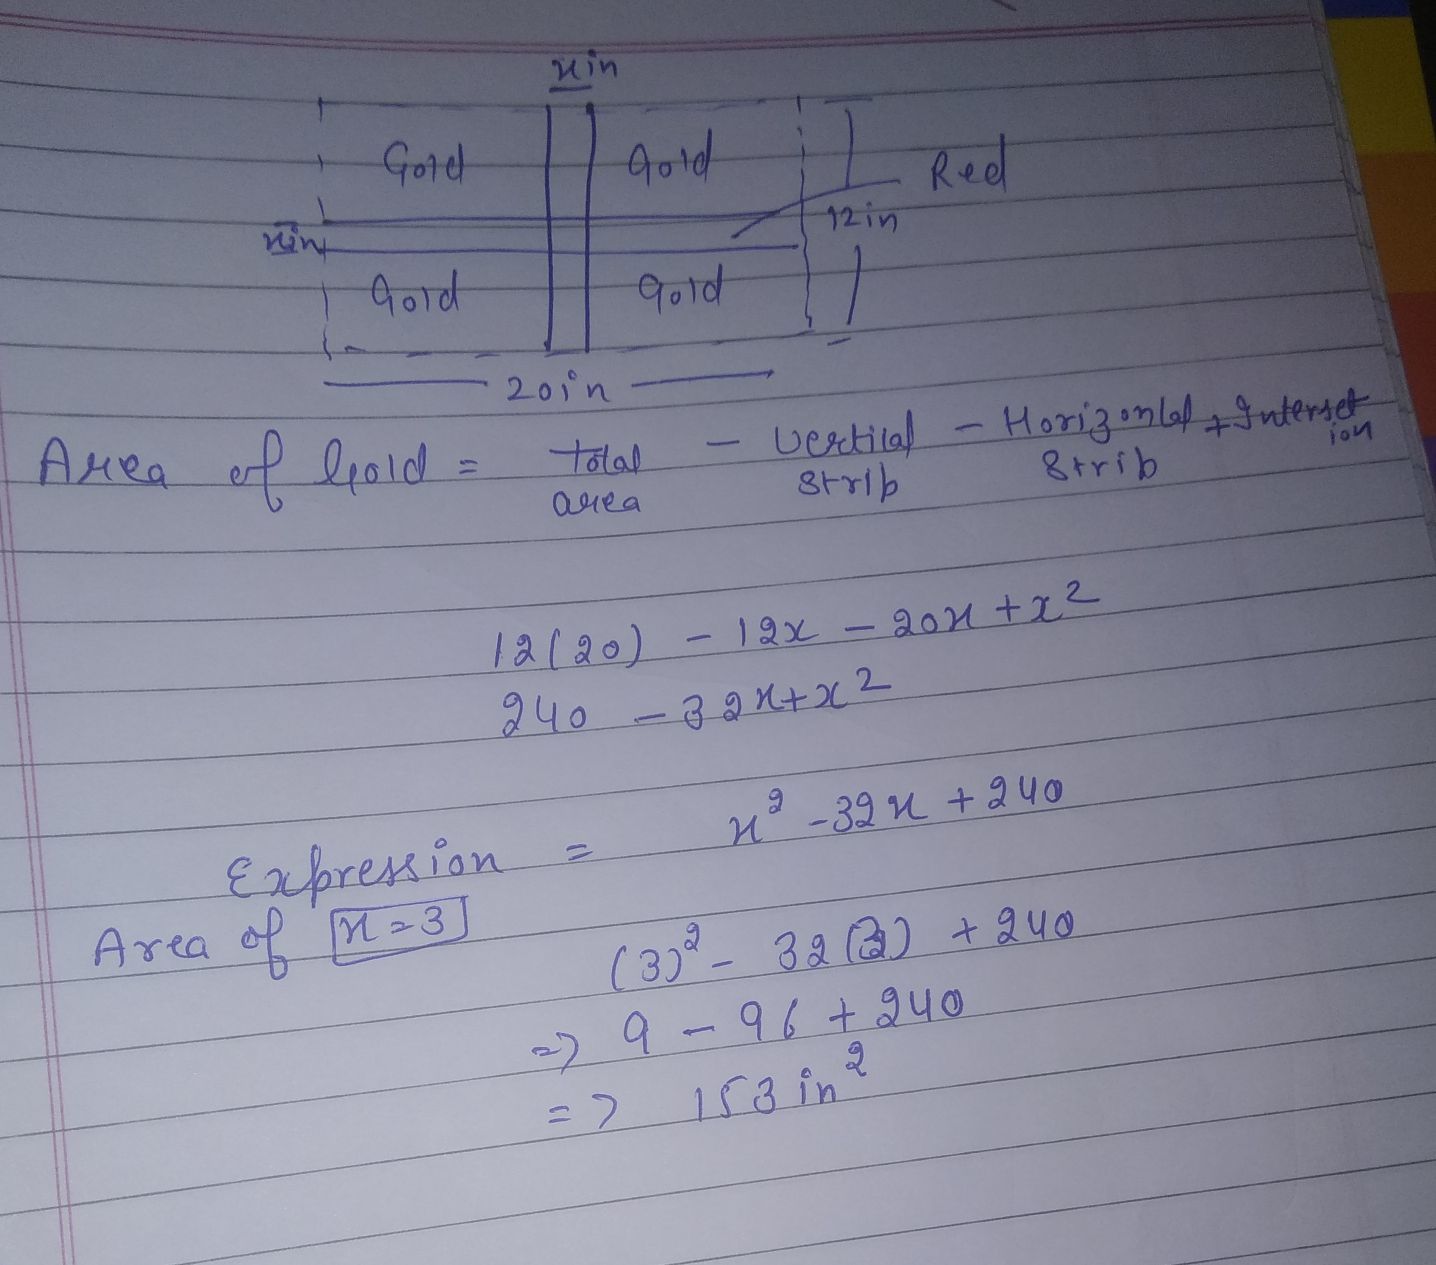 xin
Gold Gold Red
xin 12in
Gold Gold
20in
Area of Gold = total area - Vertical Strib - Horizontal Strib + Intersetion
12(20) - 12x - 20x + x²
240 - 32x + x²
Expression = x² - 32x + 240
Area of x=3 (3)² - 32(3) + 240
=> 9 - 96 + 240
=> 153 in²